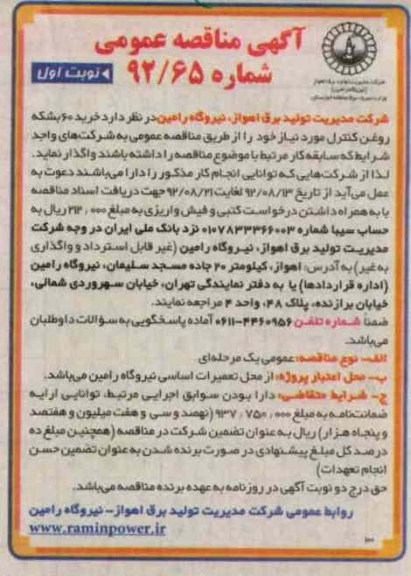 آگهی مناقصه عمومی
شماره ۹۲/۶۵
نوبت اول
شرکت مدیریت تولید برق اهواز، نیروگاه رامین در نظر دارد خرید ۶۰ بشکه
روغن کنترل مورد نیاز خود را از طریق مناقصه عمومی به شرکت‌های واجد
شرایط که سابقه کار مرتبط با موضوع مناقصه را داشته باشند واگذار نماید.
لذا از شرکت‌هایی که توانایی انجام کار مذکور را دارا می‌باشند دعوت به
عمل می‌آید از تاریخ ۹۲/۰۸/۱۳ لغایت ۹۲/۰۸/۲۱ جهت دریافت اسناد مناقصه
با به همراه داشتن درخواست کتبی و فیش واریزی به مبلغ ۲۱۲٬۰۰۰ ریال به
حساب سیبا شماره ۰۱۰۷۸۳۳۳۶۶۰۰۳ نزد بانک ملی ایران در وجه شرکت
مدیریت تولید برق اهواز، نیروگاه رامین (غیر قابل استرداد و واگذاری
به غیر) به آدرس: اهواز، کیلومتر ۲۰ جاده مسجد سلیمان، نیروگاه رامین
(اداره قراردادها) یا به دفتر نمایندگی تهران، خیابان سهروردی شمالی،
خیابان برازنده، پلاک ۴۸، واحد ۴ مراجعه نمایند.
ضمنا شماره تلفن ۴۴۶۰۹۵۶-۰۶۱۱ آماده پاسخگویی به سؤالات داوطلبان
می‌باشد.
الف- نوع مناقصه: عمومی یک مرحله‌ای
ب- محل اعتبار پروژه: از محل تعمیرات اساسی نیروگاه رامین می‌باشد.
ج- شرایط متقاضی: دارا بودن سوابق اجرایی مرتبط، توانایی ارایه
ضمانتنامه به مبلغ ۹۳۷٬۷۵۰٬۰۰۰ (نهصد و سی و هفت میلیون و هفتصد
و پنجاه هزار) ریال به عنوان تضمین شرکت در مناقصه (همچنین مبلغ ده
درصد کل مبلغ پیشنهادی در صورت برنده شدن به عنوان تضمین حسن
انجام تعهدات)
حق درج دو نوبت آگهی در روزنامه به عهده برنده مناقصه می‌باشد.
روابط عمومی شرکت مدیریت تولید برق اهواز- نیروگاه رامین
www.raminpower.ir